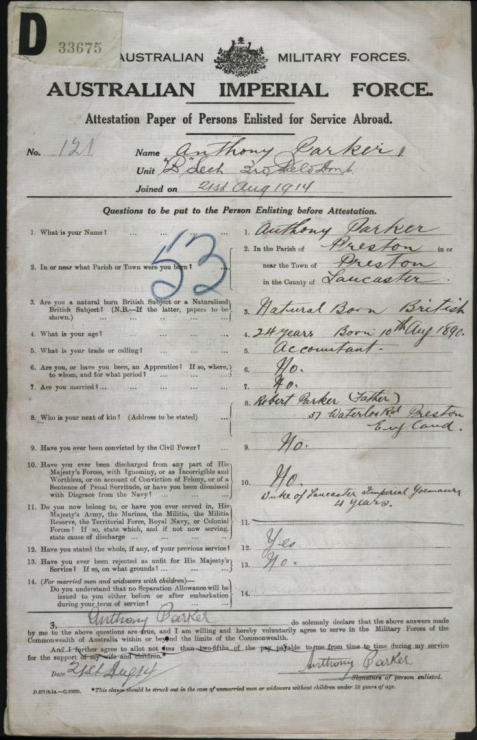 D 33675
AUSTRALIAN MILITARY FORCES.
AUSTRALIAN IMPERIAL FORCE.
Attestation Paper of Persons Enlisted for Service Abroad.
No. 121 Name Anthony Parker
Unit "B" Sect 3rd Field Amb
Joined on 21st Aug 1914
Questions to be put to the Person Enlisting before Attestation.
53
1. What is your Name? ... ... ... 1. Anthony Parker
2. In or near what Parish or Town were you born? 2. In the Parish of Preston in or
near the Town of Preston
in the County of Lancaster
3. Are you a natural born British Subject or a Naturalised
British Subject? (N.B.—If the latter, papers to be
shown.) ... 3. Natural Born British
4. What is your age? ... 4. 24 years Born 10th Aug 1890.
5. What is your trade or calling? ... 5. Accountant.
6. Are you, or have you been, an Apprentice? If so, where,
to whom, and for what period? ... 6. No.
7. Are you married? ... 7. No.
8. Who is your next of kin? (Address to be stated) ... 8. Robert Parker (Father)
57 Waterloo Rd Preston
England.
9. Have you ever been convicted by the Civil Power? ... 9. No.
10. Have you ever been discharged from any part of His
Majesty's Forces, with Ignominy, or as Incorrigible and
Worthless, or on account of Conviction of Felony, or of a
Sentence of Penal Servitude, or have you been dismissed
with Disgrace from the Navy? ... 10. No.
11. Do you now belong to, or have you ever served in, His
Majesty's Army, the Marines, the Militia, the Militia
Reserve, the Territorial Force, Royal Navy, or Colonial
Forces? If so, state which, and if not now serving,
state cause of discharge ... 11. Duke of Lancaster Imperial Yeomanry
4 years.
12. Have you stated the whole, if any, of your previous service? 12. Yes
13. Have you ever been rejected as unfit for His Majesty's
Service? If so, on what grounds? ... 13. No.
14. (For married men and widowers with children)—
Do you understand that no Separation Allowance will be
issued to you either before or after embarkation
during your term of service? 14.
I, Anthony Parker do solemnly declare that the above answers made
by me to the above questions are true, and I am willing and hereby voluntarily agree to serve in the Military Forces of the
Commonwealth of Australia within or beyond the limits of the Commonwealth.
And I further agree to allot not less than two-fifths of the pay payable to me from time to time during my service
for the support of my wife and children.*
Date 21st Aug 14 Anthony Parker
Signature of person enlisted.
*This clause should be struck out in the case of unmarried men or widowers without children under 18 years of age.